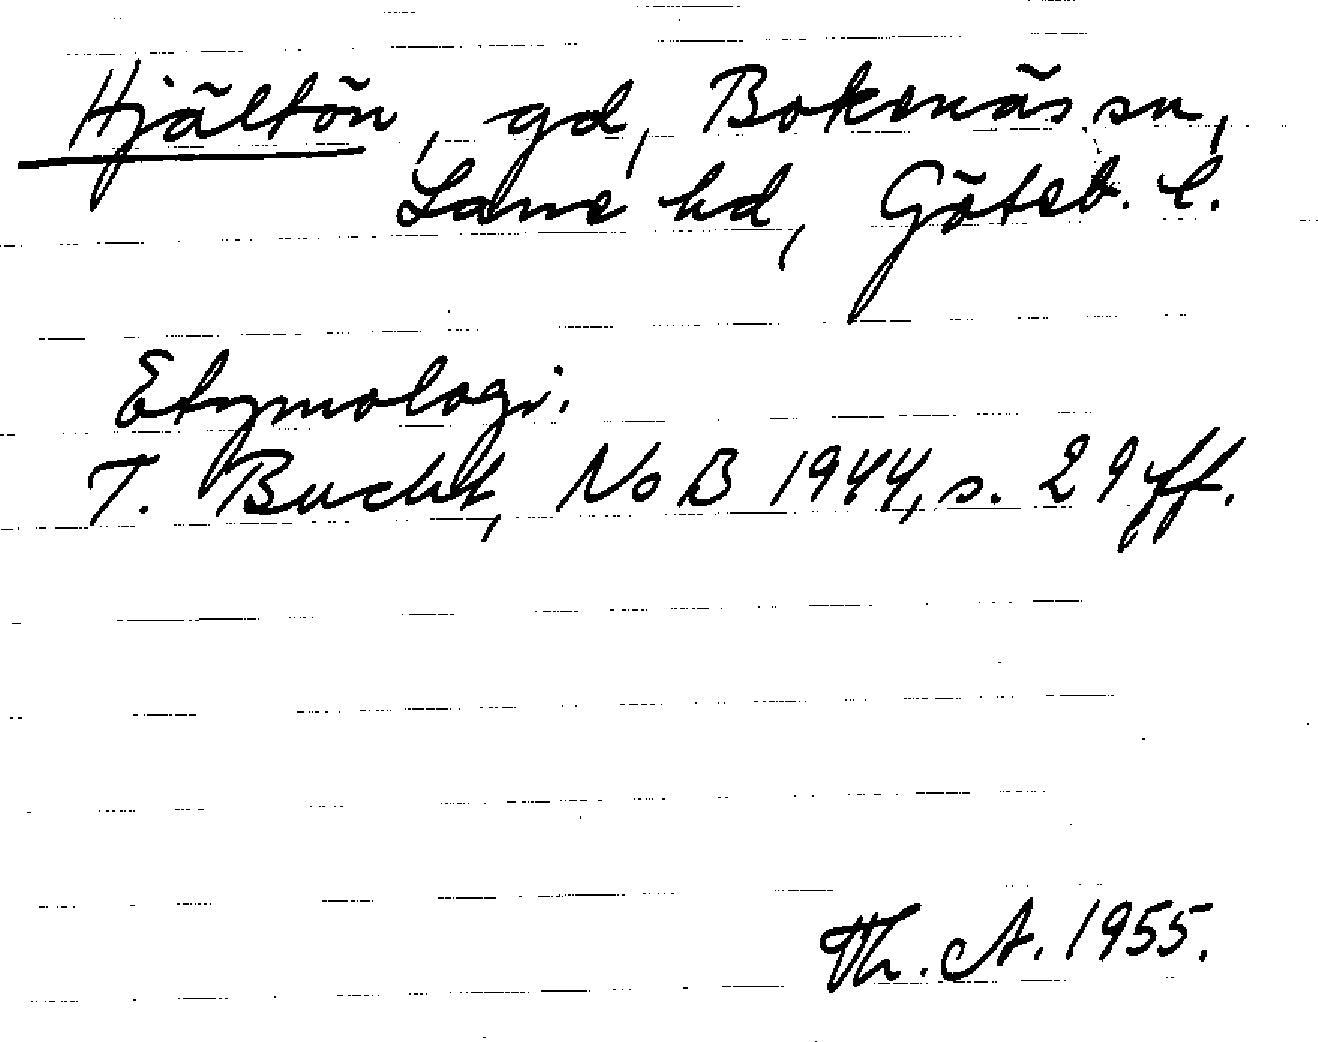 Hjältön, gd, Bokenäs sn,
Lane hd, Göteb. l.
Etymologi.
T. Bucht, NoB 1944, s. 29 ff.
Th. A. 1955.